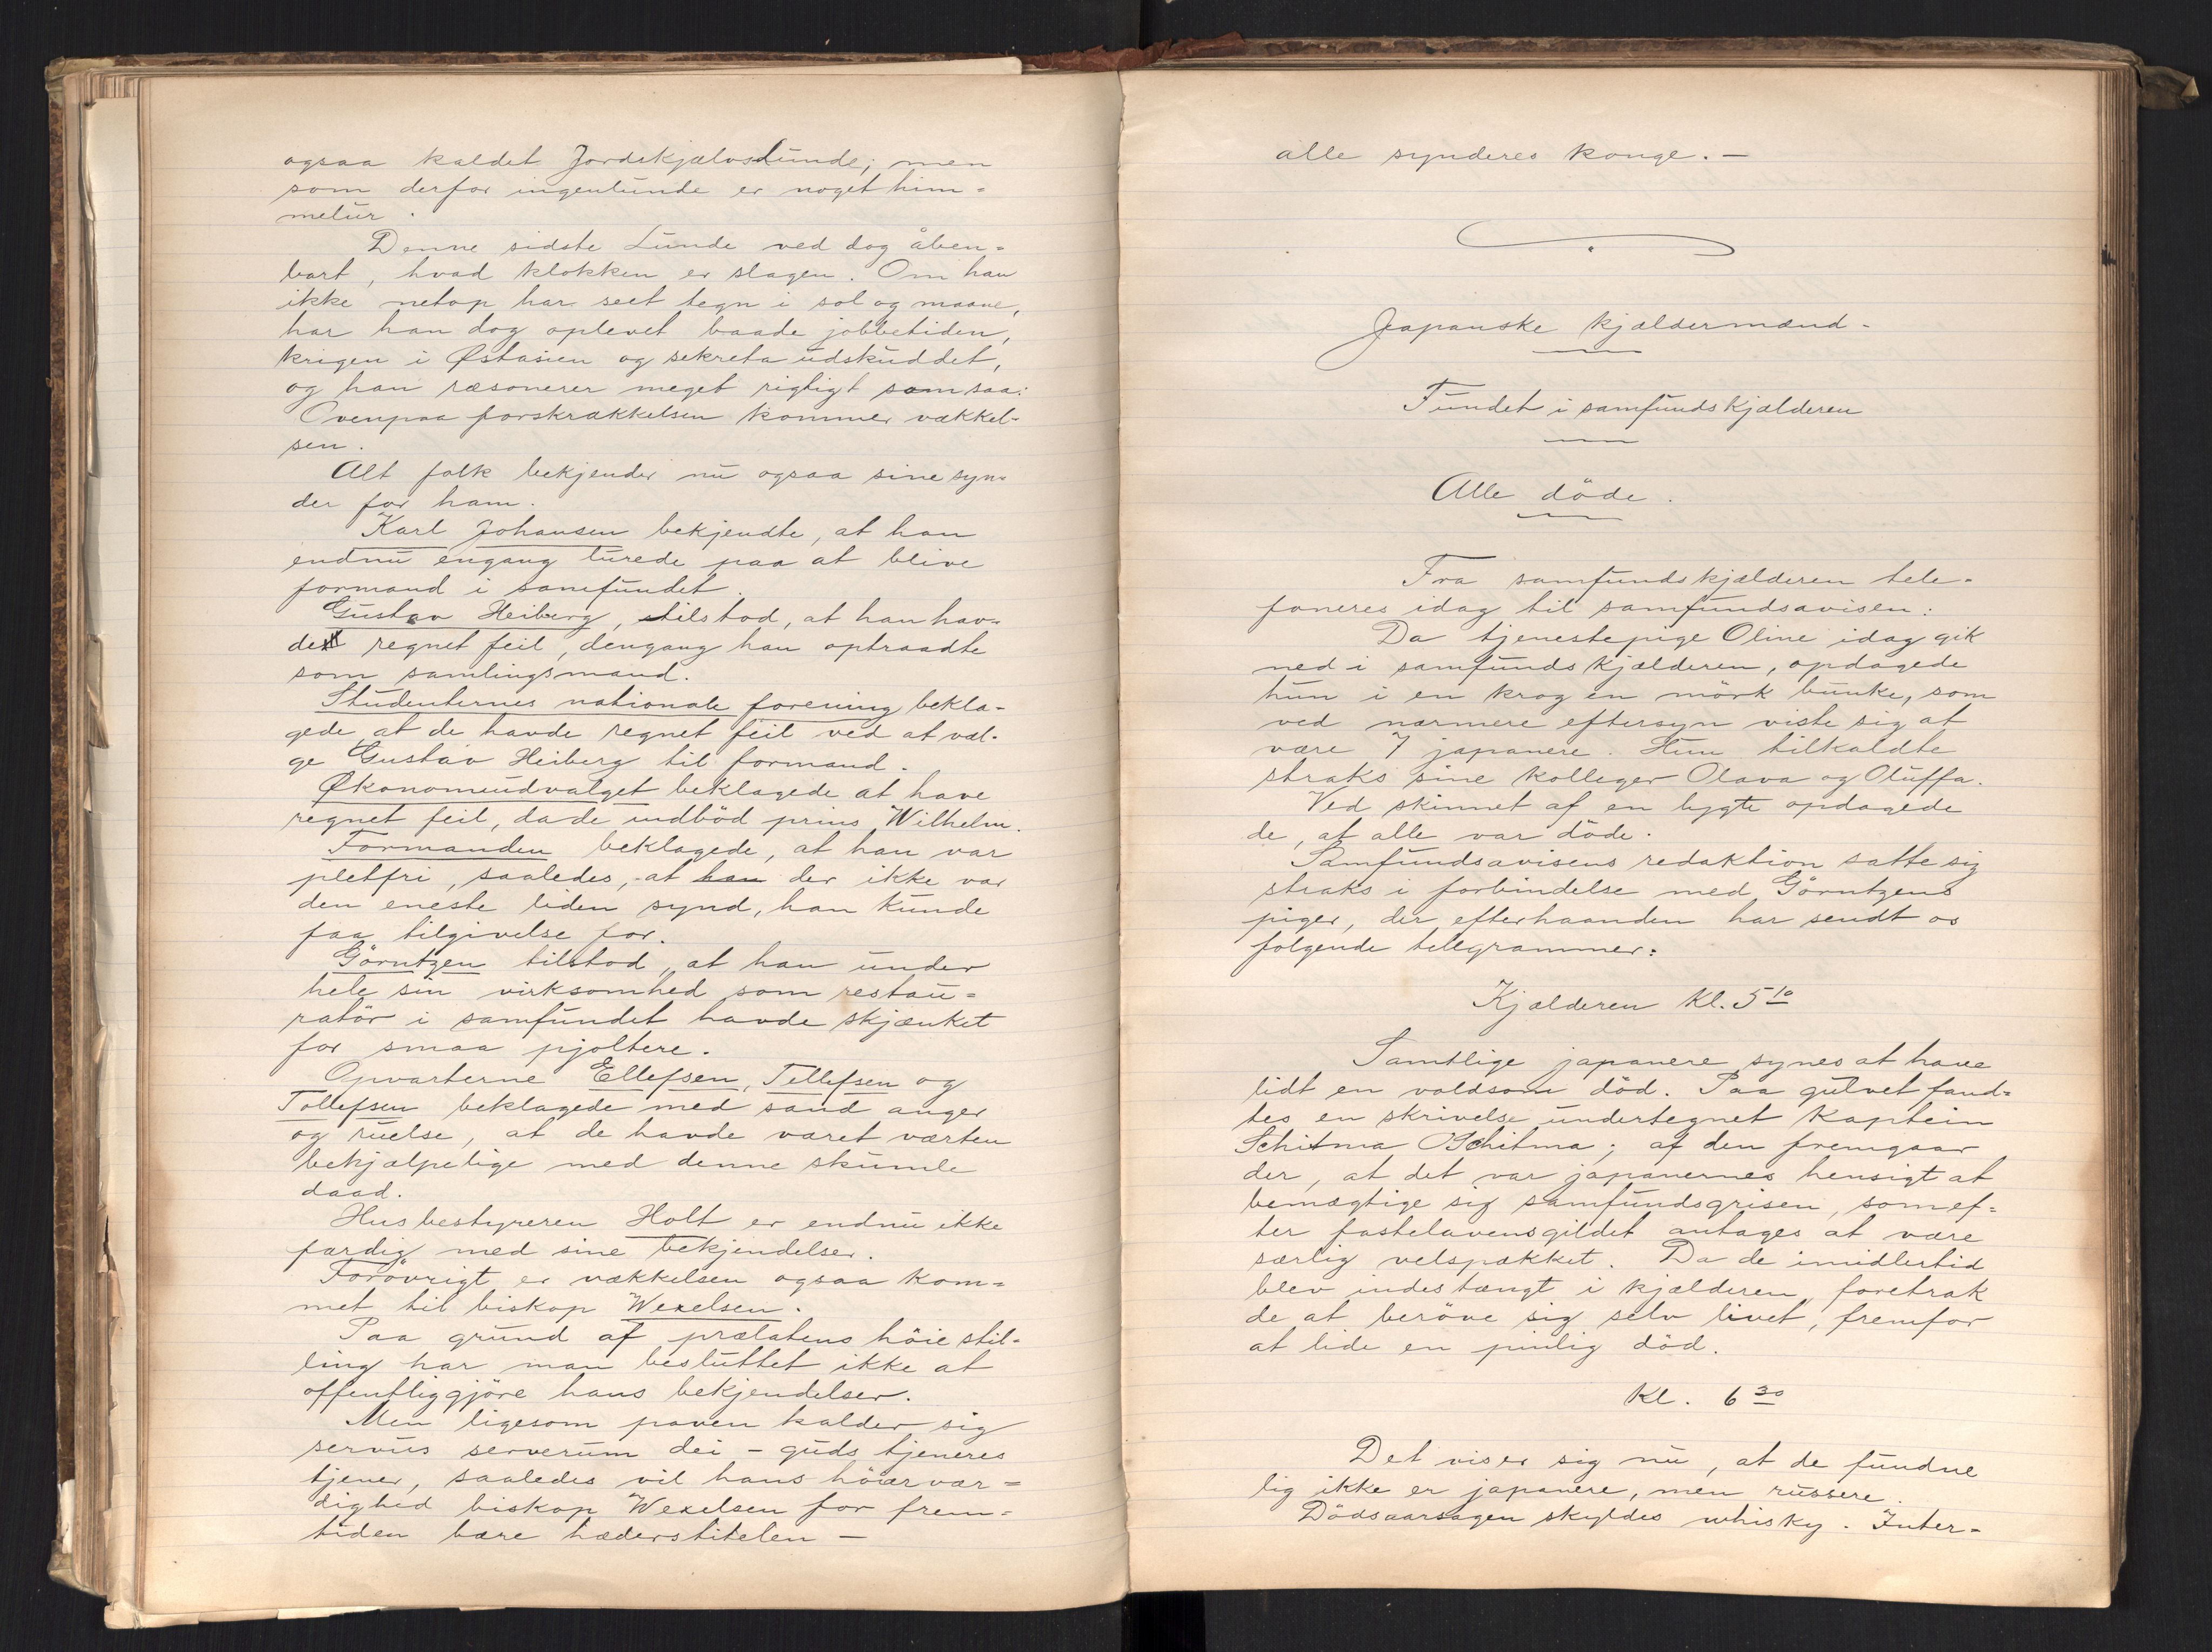 ogsaa kaldet Jordskjælvslunde; men
som derfor ingenlunde er noget him=
melur.
Denne sidste Lunde ved dog åben=
bart, hvad klokken er slagen. Om han
ikke netop har seet tegn i sol og maane,
har han dog oplevet baade jobbetiden,
krigen i Østasien og sekreta udskuddet,
og han ræsonerer meget rigtigt som saa:
Ovenpaa forskrækkelsen kommer vækkel-
sen.
Alt folk bekjender nu ogsaa sine syn=
der for ham.
Karl Johansen bekjendte, at han
endnu engang lurede paa at blive
formand i samfundet.
Gustav Heiberg, tilstod, at han hav=
de regnet feil, dengang han optraadte
som samlingsmand.
Studenternes nationale forening bekla-
gede at de havde regnet feil ved at væl-
ge Gustav Heiberg til formand.
Økonomeudvalget beklagede at have
regnet feil, da de indbød prins Wilhelm.
Formanden beklagede, at han var
pletfri, saaledes, at han der ikke var
den eneste liden synd, han kunde
faa tilgivelse for.
Görntzen tilstod, at han under
hele sin virksomhed som restau=
ratör i samfundet havde skjænket
for smaa pjoltere.
Opvarterne Ellefsen, Tellefsen og
Tollefsen beklagede med sand anger
og ruelse, at de havde været værten
behjælpelige med denne skumle
daad.
Husbestyreren Holt er endnu ikke
færdig med sine bekjendelser.
Forövrigt er vækkelsen ogsaa kom=
met til biskop Wexelsen.
Paa grund af prælatens höie stil-
ling har man besluttet ikke at
offentliggjöre hans bekjendelser.
Men ligesom paven kalder sig
servus serverum dei - guds tjeneres
tjener, saaledes vil hans höiærvær=
dighed biskop Wexelsen for frem=
tiden bære hæderstitelen —
alle synderes konge. —
Japanske kjældermænd.
Fundet i samfundskjælderen
Alle döde.
Fra samfundskjælderen tele-
foneres idag til samfundsavisen:
Da tjenestepige Oline idag gik
ned i samfundskjælderen, opdagede
hun i en krog en mörk bunke, som
ved nærmere eftersyn viste sig at
være 7 japanere. Hun tilkaldte
straks sine kolleger Olava og Oluffa.
Ved skinnet af en lygte opdagede
de, at alle var döde.
Samfundsavisens redaktion satte sig
straks i forbindelse med Görntzens
piger, der efterhaanden har sendt os
folgende tellgrammer:
Kjælderen Kl. 5 10
Samtlige japanere synes at have
lidt en voldsom död. Paa gulvet fand=
tes en skrivelse undertegnet Kaptein
Schitma OSchitma; af den fremgaar
der, at det var japanernes hensigt at
bemægtige sig samfundsgrisen, som ef=
ter fastelavensgildet antages at være
særlig velspækket. Da de imidlertid
blev indestængt i kjælderen, foretrak
de at beröve sig selv livet, fremfor
at lide en pinlig död.
Kl. 6 30
Det viser sig nu, at de fundne
lig ikke er japanere, men russere.
Dödsaarsagen skyldes whisky. Inter-